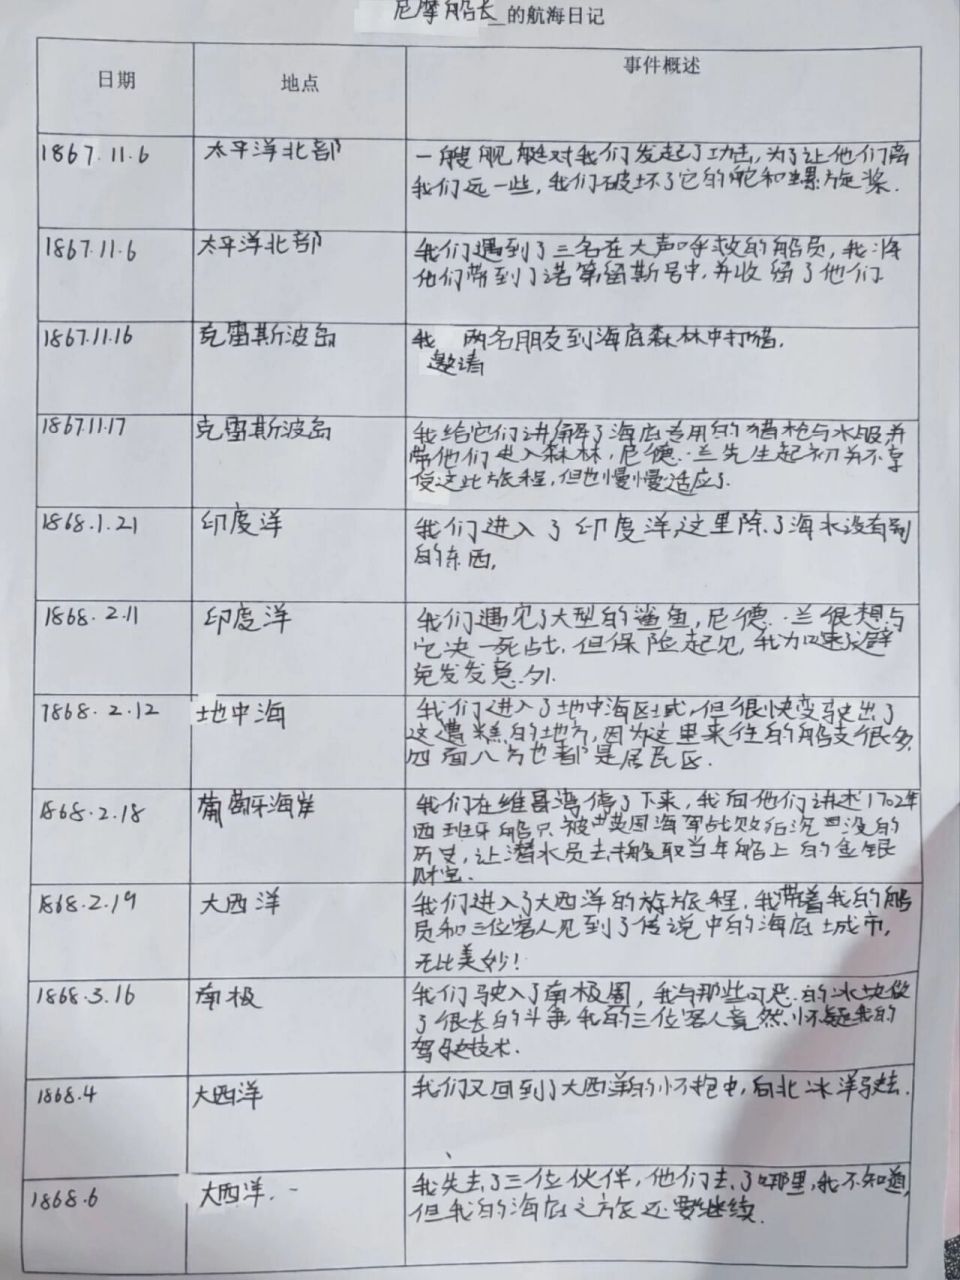 尼摩船长 的航海日记
日期 地点 事件概述
1867.11.6 太平洋北部 一艘舰艇对我们发起了攻击,为了让他们离
我们远一些,我们破坏了它的舵和螺旋桨.
1867.11.6 太平洋北部 我们遇到了三名在大声呼救的船员,我将
他们带到了诺第留斯号中,并收留了他们
1867.11.16 克雷斯波岛 我 两名朋友到海底森林中打猎.
邀请
1867.11.17 克雷斯波岛 我给它们讲解了海底专用的猎枪与水服并
带他们进入森林,尼德·兰先生起初并不享
受这此旅程,但也慢慢适应了.
1868.1.21 印度洋 我们进入了印度洋,这里除了海水没有别
的东西.
1868.2.11 印度洋 我们遇见了大型的鲨鱼,尼德·兰很想与
它决一死战,但保险起见,我加速了避
免发发意外.
1868.2.12 地中海 我们进入了地中海区域,但很快变驶出了
这遭糕的地方,因为这里来往的船支很多,
四面八方也都是居民区.
1868.2.18 葡萄牙海岸 我们在维哥湾停了下来,我向他们讲述1702年
西班牙船只被英国海军战败后沉没的
历史,让潜水员去捞取当年船上的金银
财宝.
1868.2.19 大西洋 我们进入了大西洋的旅程,我带着我的船
员和三位客人见到了传说中的海底城市,
无比美妙!
1868.3.16 南极 我们驶入了南极圈,我与那些可恶的冰块做
了很长的斗争,我的三位客人竟然怀疑我的
驾驶技术.
1868.4 大西洋 我们又回到了大西洋的怀抱中,向北冰洋驶去.
1868.6 大西洋. 我失去了三位伙伴,他们去了哪里,我不知道,
但我的海底之旅还要继续.